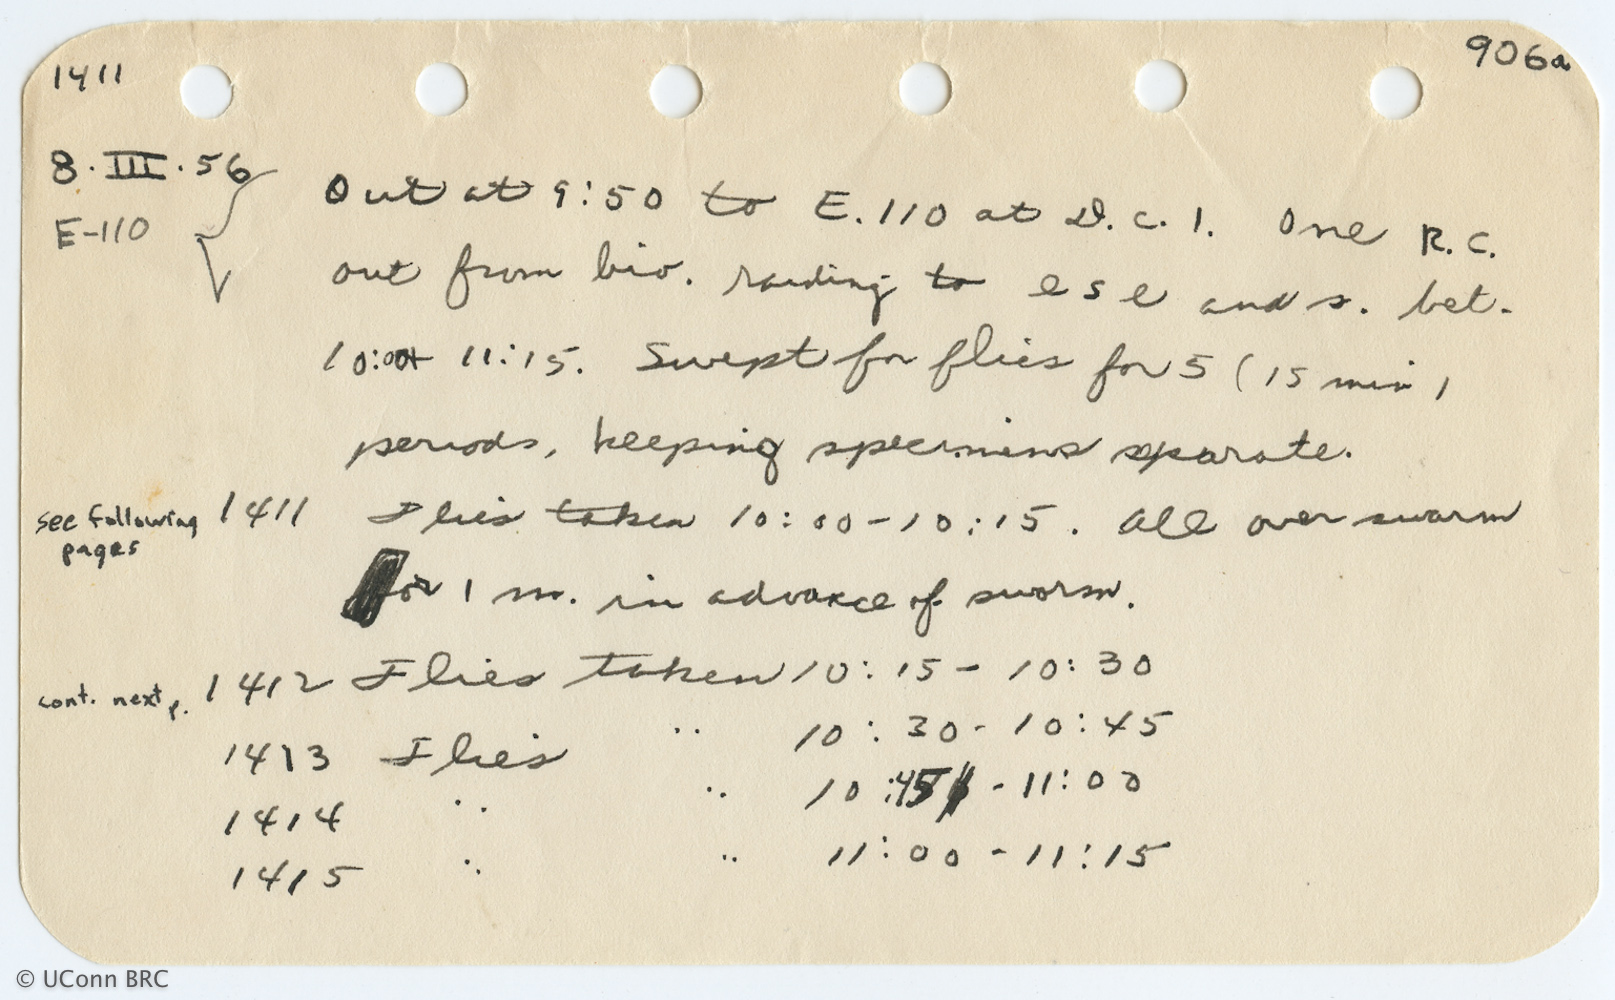 1411 906a
8.III.56
E-110
Out at 9:50 to E.110 at D.C.1. One R.C.
out from biv. raiding to e s e and s. bet.
10:00+ 11:15. Swept for flies for 5 (15 min)
periods, keeping specimens separate.
see following pages 1411 Flies taken 10:00-10:15. All over swarm
or 1 m. in advance of swarm.
cont. next p. 1412 Flies taken 10:15-10:30
1413 Flies " 10:30-10:45
1414 " " 10:45-11:00
1415 " " 11:00-11:15
© UConn BRC